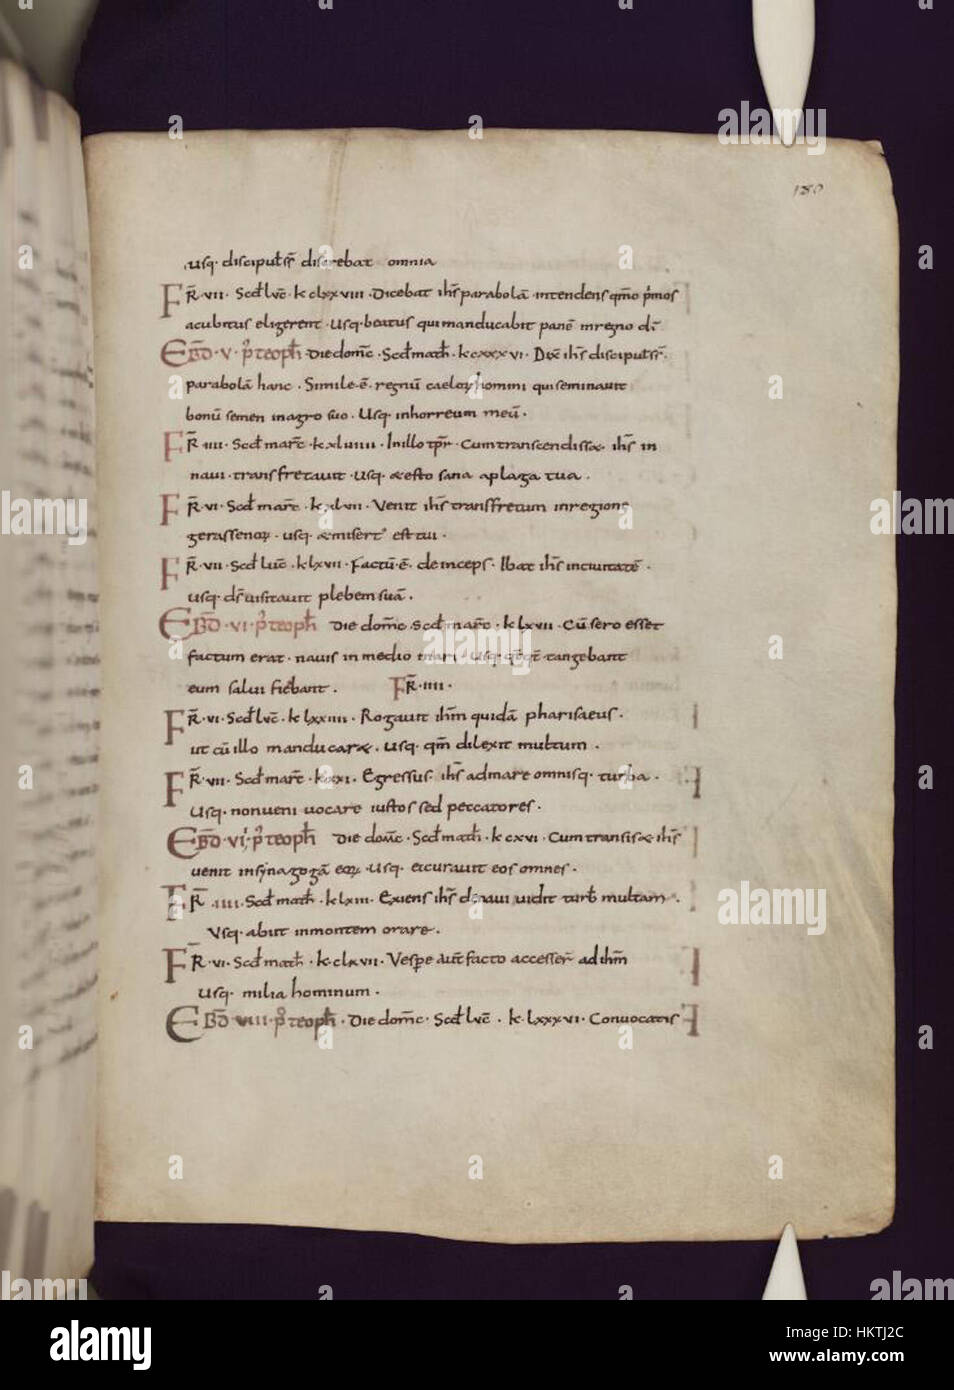 180
usq· discipul̄s̄ diserebat omnia
FR̄·vii· Scd̄ lvc̄· k cclxxviii· Dicebat ih̄s parabolā intendens qm̄o p̄mos
acubitus eligerent· Usq· beatus qui manducabit panē in regno d̄i·
EBD̄·v· p̊ teoph̄ die domc̄· Scd̄ math̄· k cxxxvi· Dix̄ ih̄s discipul̄s̄·
parabolā hanc· Simile ē· regnū caeloꝝ homini qui seminauit
bonū semen in agro suo· Usq· in horreum meū·
FR̄·iiii· Scd̄ marc̄· k xlviiii· In illo tp̄r· Cum transcendiss& ih̄s in
naui· transfretauit· Usq· & esto sana a plaga tua·
FR̄·vi· Scd̄ marc̄· k xlvii· Venit ih̄s transfretum in regione
gerassenoꝝ· usq· & misert᾽ est tui·
FR̄·vii· Scd̄ luc̄· k lxvii· Factū·ē· deinceps· Ibat ih̄s in ciuitatē·
usq· d̄s uisitauit plebem suā·
EBD̄·vi· p̊ teoph̄ die domc̄· Scd̄ marc̄· k lxvii· Cū sero esset
factum erat· nauis in medio mari· Usq· qt̄qt̄ tangebant
eum salui fiebant· FR̄·iiii·
FR̄·vi· Scd̄ lvc̄· k lxxiiii· Rogauit ih̄m quidā pharisaeus·
ut cū illo manducar&· usq· qm̄ dilexit multum·
FR̄·vii· Scd̄ marc̄· k xxi· Egressus· ih̄s ad mare omnisq· turba·
Usq· non ueni uocare iustos sed peccatores·
EBD̄·vii· p̊ teoph̄ die domc̄· Scd̄ math̄· k cxvi· Cum transiss& ih̄s
uenit in synagogā eoꝝ· Usq· et curauit eos omnes·
FR̄·iiii· Scd̄ math̄· k lxiii· Exiens ih̄s d naui uidit turb̄ multam·
Usq· abiit in montem orare·
FR̄·vi· Scd̄ math̄· k clxvii· Vesp̄e aut̄ facto accesser̄ ad ih̄m
usq· milia hominum·
EBD̄ viii p̊ teoph̄· Die domc̄· Scd̄ lvc̄· k lxxxvi· Convocatis
alamy
alamy
Image ID: HKTJ2C
www.alamy.com